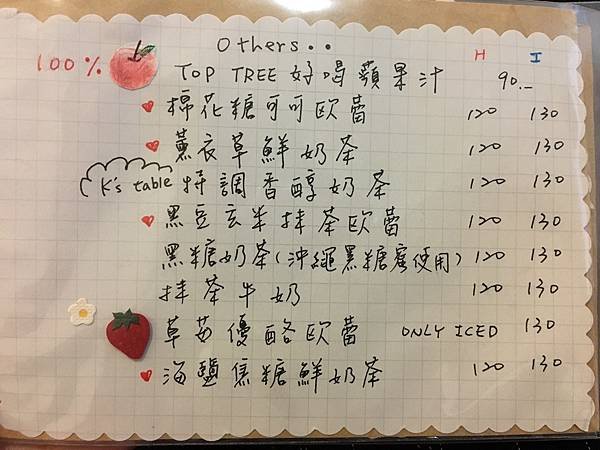 Others..
H I
100% TOP TREE 好喝蘋果汁 90.-
棉花糖可可欧蕾 120 130
薰衣草鮮奶茶 120 130
K's table 特調香醇奶茶 120 130
黑豆玄米抹茶欧蕾 120 130
黑糖奶茶(沖繩黑糖蜜使用) 120 130
抹茶牛奶 120 130
草莓優酪欧蕾 ONLY ICED 130
海鹽焦糖鮮奶茶 120 130